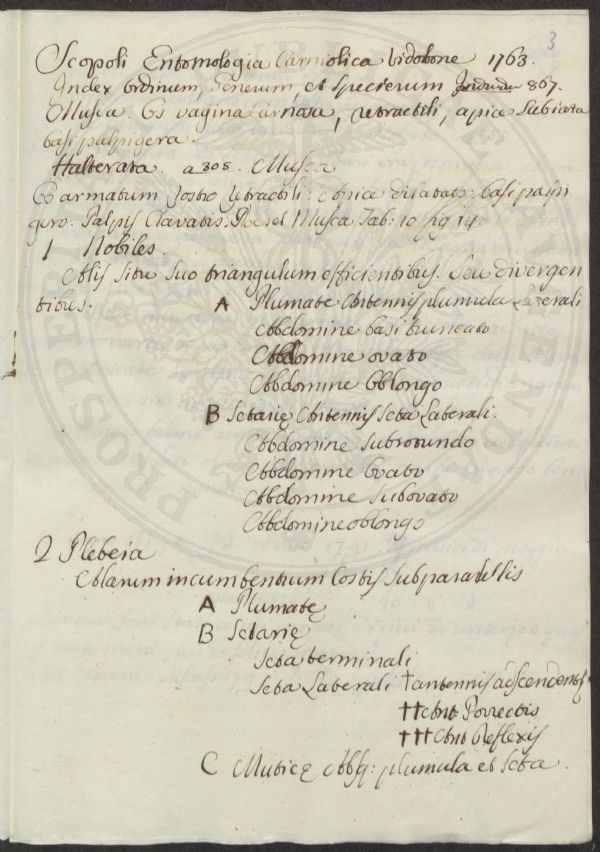 3
Scopoli Entomologia Carniolica Vidobone 1763.
Index Ordinum, Generum, et Specierum 867.
Musca. Os vagina carnosa, retractili, apice Labiata
basi palpigera.
Halterata. a 808. Musca
Os armatum rostro retractili: apice dilatato: basi palpi
gero. Palpis Clavatis. Roesel Musca Tab: 10 fig 14.
1 Nobiles.
Alis situ suo triangulum efficientibus. Seu divergen
tibus.
A Plumatę Antennis plumula Laterali
Abdomine basi truncato
Abdomine ovato
Abdomine Oblongo
B Setarię Antennis Seta Laterali.
Abdomine Subrotundo
Abdomine Ovato
Abdomine Subovato
Abdomine oblongo
2 Plebeia
Alarum incumbentium Costis Subparallelis
A Plumatę
B Setarię
Seta terminali
Seta Laterali † antennis adscendentib
†† Ant: Porrectis
††† Ant: Reflexis
C Muticę Absq: plumula et Seta.
PROSPERI
PUBLICAE